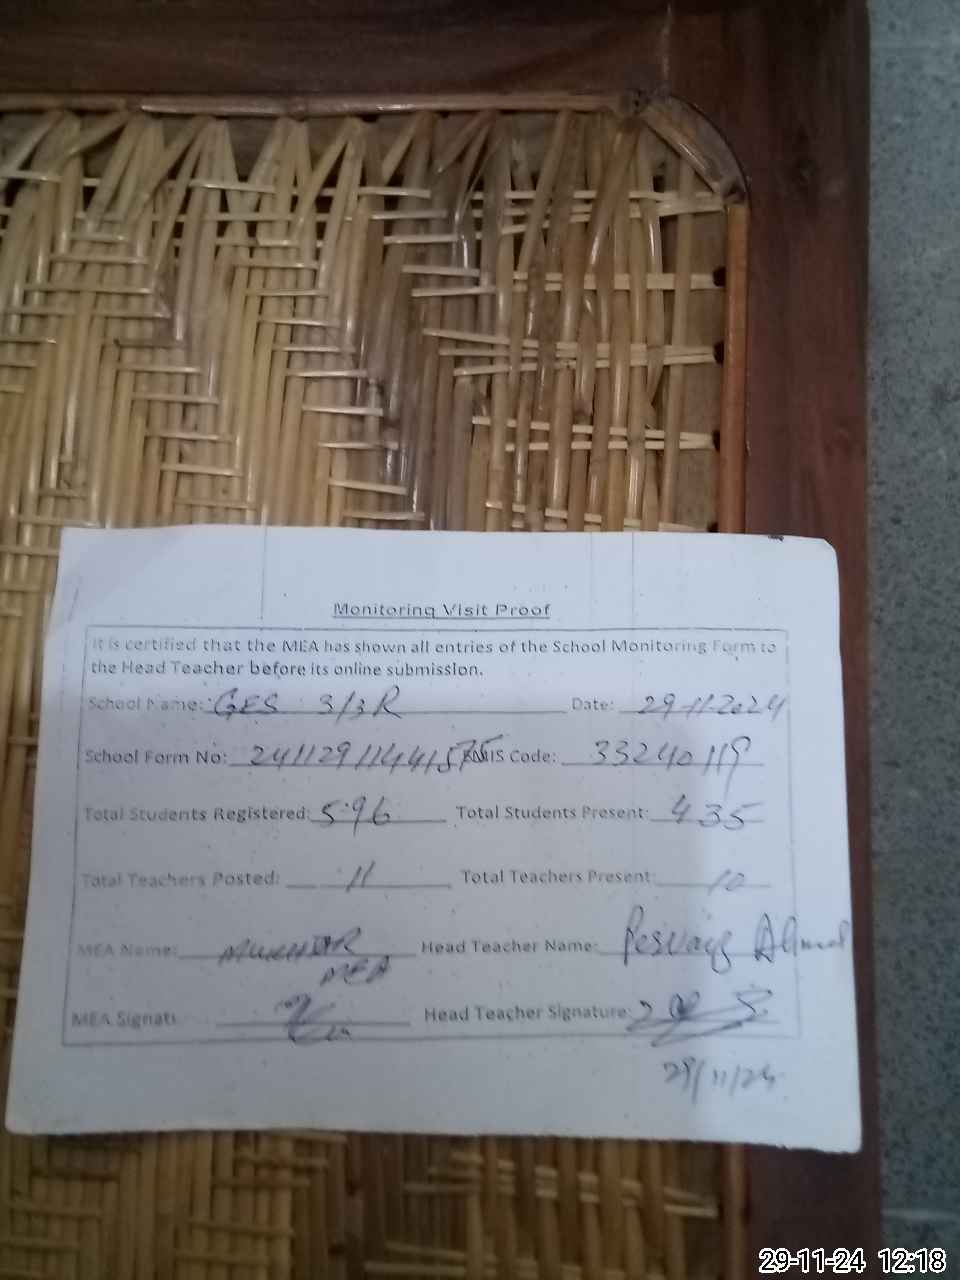 Monitoring Visit Proof
It is certified that the MEA has shown all entries of the School Monitoring Form to
the Head Teacher before its online submission.
School Name: GES 3/3R Date: 29-11-2024
School Form No: 24112911441575 EMIS Code: 33240119
Total Students Registered: 596 Total Students Present: 435
Total Teachers Posted: 11 Total Teachers Present: 10
MEA Name: MUKHTAR Head Teacher Name: Pervaiz Ahmad
MEA
MEA Signatu Head Teacher Signature:
29/11/24
29-11-24 12:18